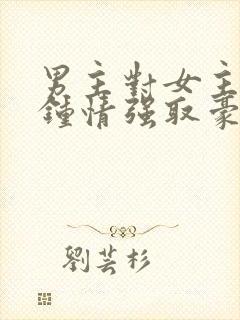 男主對女主
鍾情强取豪
劉芸杉